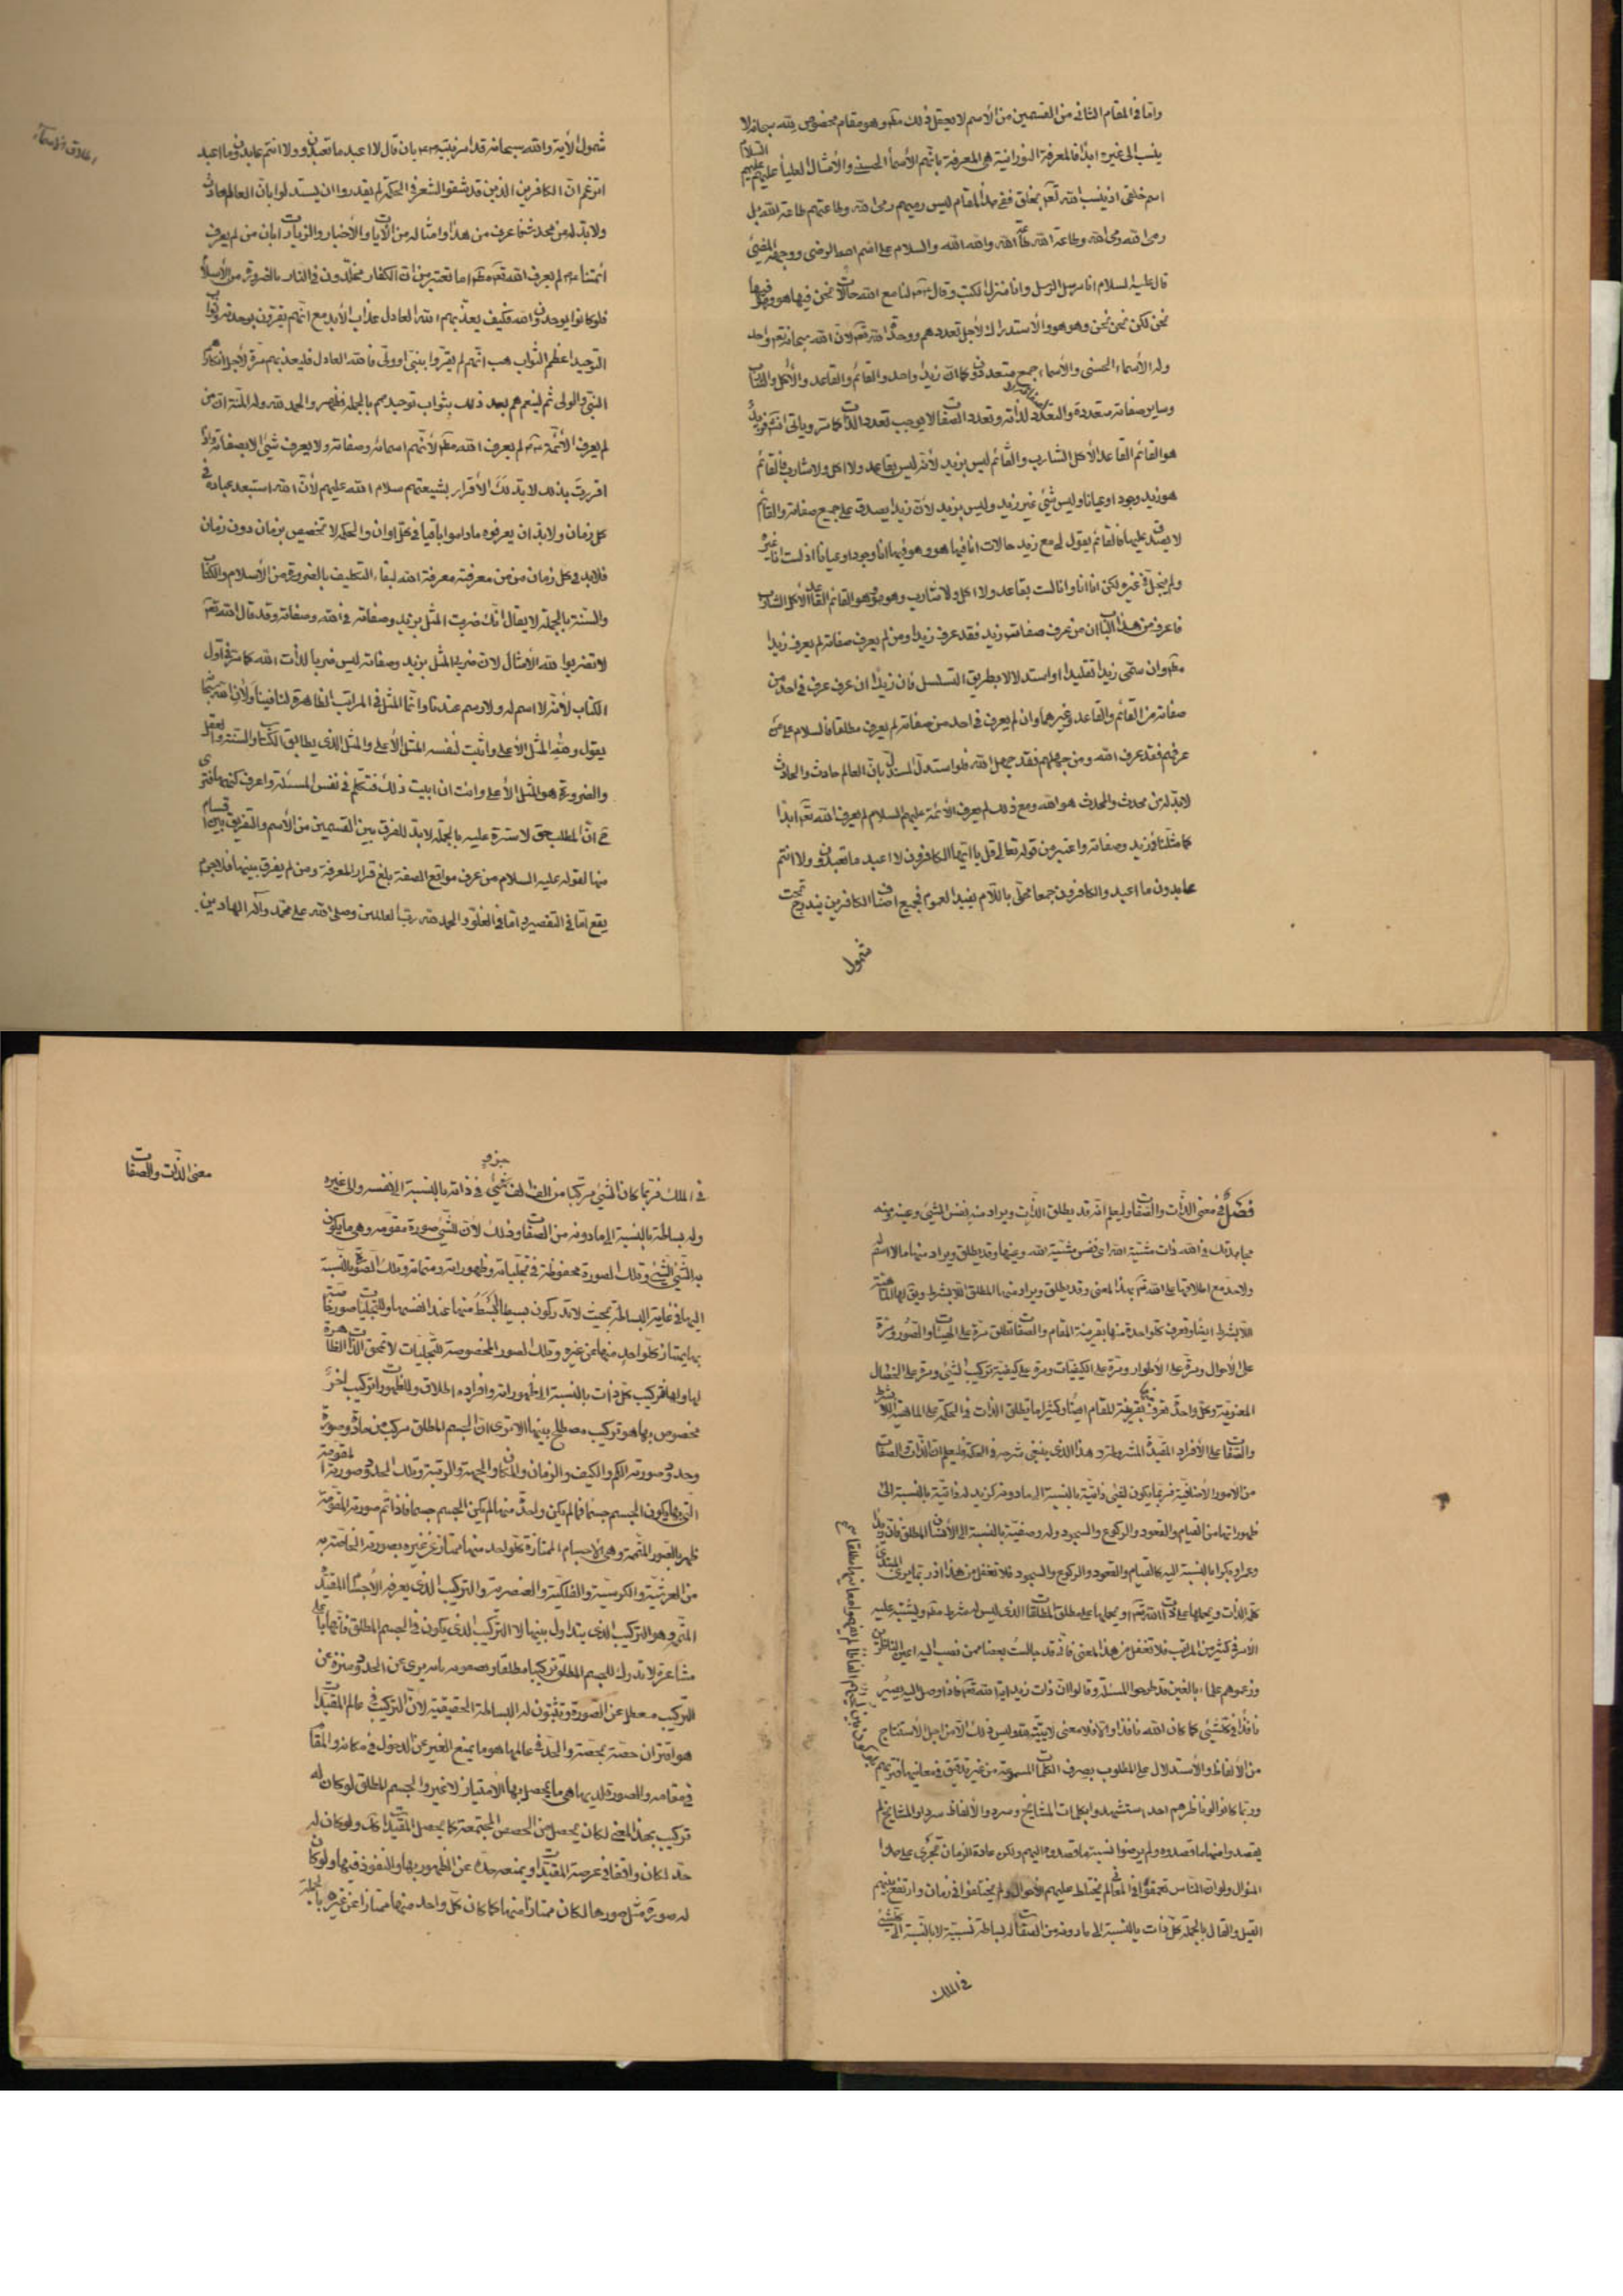 واما في المقام الثاني من القسمين من الأسم لا يعقل ذلك مطلقا وهو مقام مخصوص بالله سبحانه لا
ينسب الى غيره ابدا فالمعرفة النورانية هي المعرفة بانهم الأسماء الحسنى والأمثال العليا عليهم السلام
رمى الله ومحمد الله وطاعة الله والله الله والسلام على اسم الله الرضي ووجهه المضيئ
قال عليه السلام انا مرسل الرسل وانا منزل الكتب وقال لنا مع الله حالات نحن فيها هو وهو فيها
نحن لكن نحن نحن وهو هو والأستدراك لأجل تعددهم ووحدة الله تعالى لان الله سبحانه تعالى واحد
وله الأسماء الحسنى والأسماء جمع متعدد كما ان زيدا واحد والقائم والقاعد والأكل والشارب
وساير صفاته متعددة وتعدد الصفات لا يوجب تعدد الذات كما مر وياتي
هو القائم القاعد الأكل الشارب والقائم ليس بزيد لأنه ليس بقاعد ولا اكل ولا شارب فالقائم
هو زيد وجودا وعيانا وليس شئ غير زيد وليس بزيد لأن زيدا يصدق على جميع صفاته والقائم
لا يصدق عليها فالقائم يقول لي مع زيد حالات انا فيها هو وهو فيها انا وجودا وعيانا اذ لست انا غيره
ولم يتجل في غيري لكن انا انا وانا لست بقاعد ولا اكل ولا شارب وهو هو القائم القاعد الأكل الشارب
فاعرف من هذا البيان ان من عرف صفات زيد فقد عرف زيدا ومن لم يعرف صفاته لم يعرف زيدا
مطلقا وان سمى زيدا تقليدا او استدلالا بطريق التسلسل فان زيدا ان عرف عرف في احد من
صفاته من القائم والقاعد وغيرهما وان لم يعرف في احد من صفاته لم يعرف مطلقا فالسلام على من
عرفهم فقد عرف الله ومن جهلهم فقد جهل الله فلو استدل المستدل بان العالم حادث والحادث
لابد له من محدث والمحدث هو الله ومع ذلك لم يعرف الأئمة عليهم السلام لم يعرف الله تعالى ابدا
كما مثلنا في زيد وصفاته واعتبر من قوله تعالى قل يا ايها الكافرون لا اعبد ما تعبدون ولا انتم
عابدون ما اعبد والكافرون جمعا محلى باللام يفيد العموم فجميع اصناف الكافرين يندرج تحت
شمول
اطلاق الأسماء
شمول الأية والله سبحانه قد امر نبيه بان قال لا اعبد ما تعبدون ولا انتم عابدون ما اعبد
اتزعم ان الكافرين الذين قد شقوا الشعر في الحكمة لم يقدروا ان يستدلوا بان العالم حادث
ولابد له من محدث فما عرف من هذا وامثاله من الأيات والأخبار والزيارات ابان من لم يعرف
ائمتنا لم يعرف الله تعالى مطلقا اما تعتبر من ان الكفار مخلدون في النار بالضرورة من الأسلام
فلو كانوا يوحدون الله فكيف يعذبهم الله العادل عذاب الأبد مع انهم يقرون بوحدته وثواب
التوحيد اعظم الثواب هب انهم لم يقروا بنبي او ولي فالله العادل فليعذبهم مرة لأجل انكارهم
النبي والولي ثم لينعمهم بعد ذلك بثواب توحيدهم بالجملة فظهر والحمد لله وله المنة ان من
لم يعرف الأئمة لم يعرف الله مطلقا لأنهم اسمائه وصفاته ولا يعرف شئ الا بصفاته واذا
اقررت بذلك لابد لك الأقرار بشيعتهم سلام الله عليهم لأن الله استعبد عباده في
كل زمان ولابد ان يعرفوه ماداموا باقيا في كل اوان والحكم لا تخصيص بزمان دون زمان
فلابد في كل زمان من من معرفته معرفة الله لبقاء التكليف بالضرورة من الأسلام والكتاب
والسنة بالجملة لا يقال انك ضربت المثل بزيد وصفاته في الله وصفاته وقد قال الله تعالى
لا تضربوا لله الأمثال لان ضرب المثل بزيد وصفاته ليس ضربا لذات الله كما مر في اول
الكتاب لأنه لا اسم له ولا رسم عندنا وانما المثل في المراتب الظاهرة لنا فينا ولأن الله تعالى
يقول ولله المثل الأعلى واثبت لنفسه المثل الأعلى والمثل الذي يطابق الكتاب والسنة والعقل
والضرورة هو المثل الأعلى وانت ان ابيت ذلك فتكلم في نفس المسئلة واعرف كنهها
ان المطلب حق لا سترة عليه بالجملة لابد للفرق بين القسمين من الأسم والتفريق بين اقسام
منها لقوله عليه السلام من عرف مواقع الصفة بلغ قرار المعرفة ومن لم يفرق بينهما فلاجرم
يقع اما في التقصير واما في الغلو والحمد لله رب العالمين وصلى الله على محمد وآله الهادين
فصل في معنى الذات والصفات وليعلم انه قد يطلق الذات ويراد منه نفس الشئ وعينه ومنه
ذات مشية الله اي نفس مشية الله وعينها وقد يطلق ويراد منها ما لا اسم له
ولا حد مع اطلاقها على الله تعالى بهذا المعنى وقد يطلق ويراد منها المطلق اللابشرط ويق لها الماهية
اللابشرط ايضا وتعرف كل واحدة منها بقرينة المقام والصفات تطلق مرة على الهيئات والصور ومرة
على الأحوال ومرة على الأطوار ومرة على الكيفيات ومرة على كيفية تركيب الشئ ومرة على الخصال
المعنوية وكل واحد تعرف بقرينة المقام ايضا وكثيرا ما يطلق الذات في الحكمة على الماهية اللابشرط
والصفات على الأفراد المقيدة المشروطة وهذا الذي ينبغي شرحه في الحكمة فليعلم ان الذات والصفات
من الأمور الأضافية فربما يكون لشئ ذاتية بالنسبة الى ما دونه كزيد له ذاتية بالنسبة الى
ظهوراتها من القيام والقعود والركوع والسجود وله وصفية بالنسبة الى الأنسان المطلق فان زيدا
وعمروا وبكرا بالنسبة اليه كالقيام والقعود والركوع والسجود فلا تغفل من هذا اذ ربما يرى المبتدي
كلمة الذات ويحملها على ذات الله تعالى او يحملها على مطلق المطلقات الذي ليس له شرط مطلقا ويشتبه عليه
الأمر في كثير من المراتب فلا تغفل من هذا المعنى فاني قد جالست بعضا ممن نصب اليه اعين الناظرين
وزعموهم علماء بالغين قد طرحوا المسئلة وقالوا ان ذات زيد اية الله تعالى فاذا وصل اليه يصير
نافذا في كل شئ كما كان الله نافذا والا فلا معنى لأيته وليس ذلك الا من اجل الأستنتاج
من الألفاظ والأستدلال على المطلوب بصرف الكلمات المسموعة من غير تدقيق في معانيها
وربما كانوا لو ناظرهم احد استشهدوا بكلمات المشايخ وسردوا الألفاظ سردا والمشايخ لم
يقصدوا منها ما قصدوه ولم يرضوا نسبة ما قصدوه اليهم ولكن عادة الزمان تجري على هذا
المنوال ولو ان الناس تعمقوا في المعاني لم يختلط عليهم الأحوال ولم يختلفوا في زمان وارتفع بينهم
القيل والقال بالجملة كل ذات بالنسبة الى ما دونه من الصفات له بساطة نسبية لا بالنسبة الى كل شئ
في الملك
معنى الذات والصفات
جزو
في الملك فربما كان الشئ مركبا من الف الف شئ في ذاته بالنسبة الى نفسه والى غيره
وله بساطة بالنسبة الى ما دونه من الصفات وذلك لأن للشئ صورة مقومة وهي ما يكون
به الشئ الشئ وتلك الصورة محفوظة في تجلياته وظهوراته ومتمماته وتلك الصورة بالنسبة
اليها في غاية البساطة بحيث لا تدركون بسيطا ابسط منها عند انفسها وللتجليات صور خاصة
بها يمتاز كل واحد منها من غيره وتلك الصور المخصوصة للتجليات لا تلحق الذات الظاهرة
لها وبها فتركيب كل ذات بالنسبة الى ظهوراته وافراده اطلاق وللظهورات تركيب اخر
مخصوص بها هو تركيب مصطلح بينها الا ترى ان الجسم المطلق مركب من مادة وصورة
وحدود صورته الكم والكيف والزمان والمكان والجهة والرتبة وتلك الحدود صورته المقومة
التي بها يكون الجسم جسما فما لم يكن واحد منها لم يكن الجسم جسما فاذا تم صورته المقومة
ظهر بالصور المتممة وهي الأجسام الممتازة كل واحد منها ممتاز عن غيره بصورته الخاصة به
من العرشية والكرسية والفلكية والعنصرية والتركيب الذي يعرفه الأجسام المقيدة
المتممة هو التركيب الذي يتداول بينها لا التركيب الذي يكون في الجسم المطلق
مشاعره لا تدرك للجسم المطلق تركيبا مطلقا ويصفونه بانه برئ عن الحدود ومنزه عن
التركيب معطل عن الصورة ويثبتون له البساطة الحقيقية لان التركيب في عالم المقيدات
هو اقتران حصة بحصة والحد في عالمها هو ما يمنع الغير عن الدخول في مكانه والمقام
في مقامه والصورة لديها هي ما يحصل بها الأمتياز لا غير والجسم المطلق لو كان له
تركيب بهذا المعنى لكان يحصل من الحصص المجتمعة كما يحصل المقيدات ولو كان له
حد لكان واقفا في عرصة المقيدات ويمنعه حده عن الظهور بها والنفوذ فيها ولو كان
له صورة مثل صورها لكان ممتازا منها كما كان كل واحد منها ممتازا عن غيره بالجملة